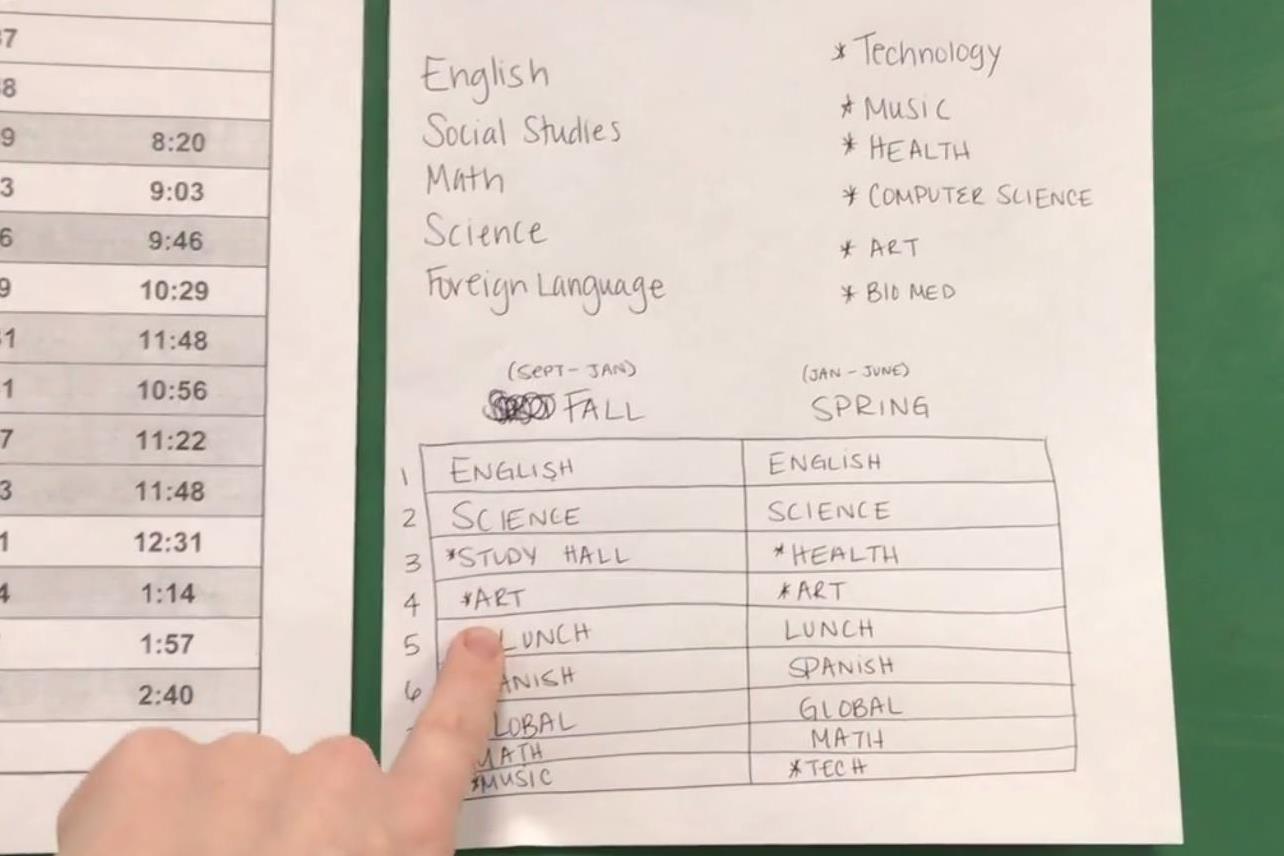 37
38
9 8:20
3 9:03
6 9:46
9 10:29
31 11:48
1 10:56
7 11:22
3 11:48
1 12:31
4 1:14
1:57
2:40
English
Social Studies
Math
Science
Foreign Language
* Technology
* MUSIC
* HEALTH
* COMPUTER SCIENCE
* ART
* BIO MED
(SEPT - JAN) (JAN - JUNE)
FALL SPRING
1 ENGLISH ENGLISH
2 SCIENCE SCIENCE
3 *STUDY HALL *HEALTH
4 *ART *ART
5 LUNCH LUNCH
6 ANISH SPANISH
LOBAL GLOBAL
MATH MATH
*MUSIC *TECH